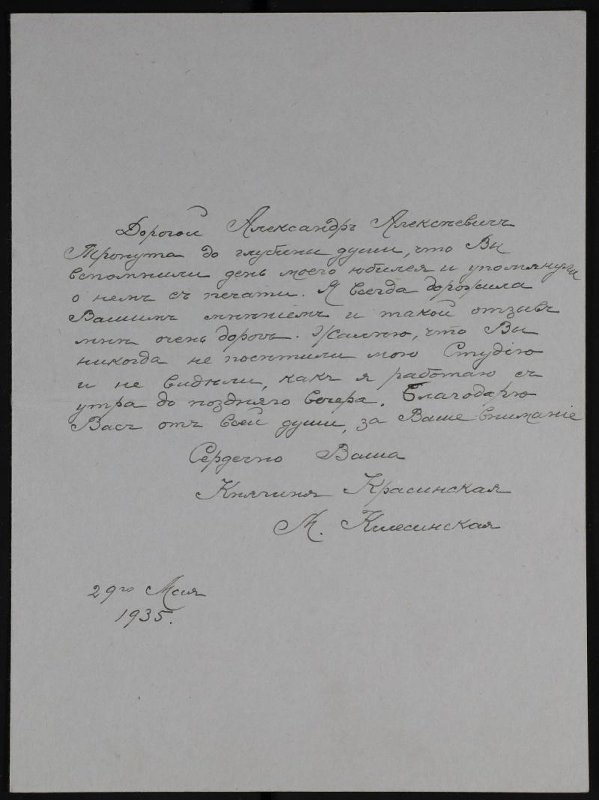 Дорогой Александръ Алексѣевичъ
Тронута до глубины души, что Вы
вспомнили день моего юбилея и упомянули
о немъ съ печати. Я всегда дорожила
Вашимъ мнѣніемъ и такой отзывъ
мнѣ очень дорогъ. Жалѣю, что Вы
никогда не посѣтили мою Студію
и не видѣли, какъ я работаю съ
утра до поздняго вечера. Благодарю
Васъ отъ всей души, за Ваше вниманіе
Сердечно Ваша
Княгиня Красинская
М. Кшесинская
29го Мая
1935.